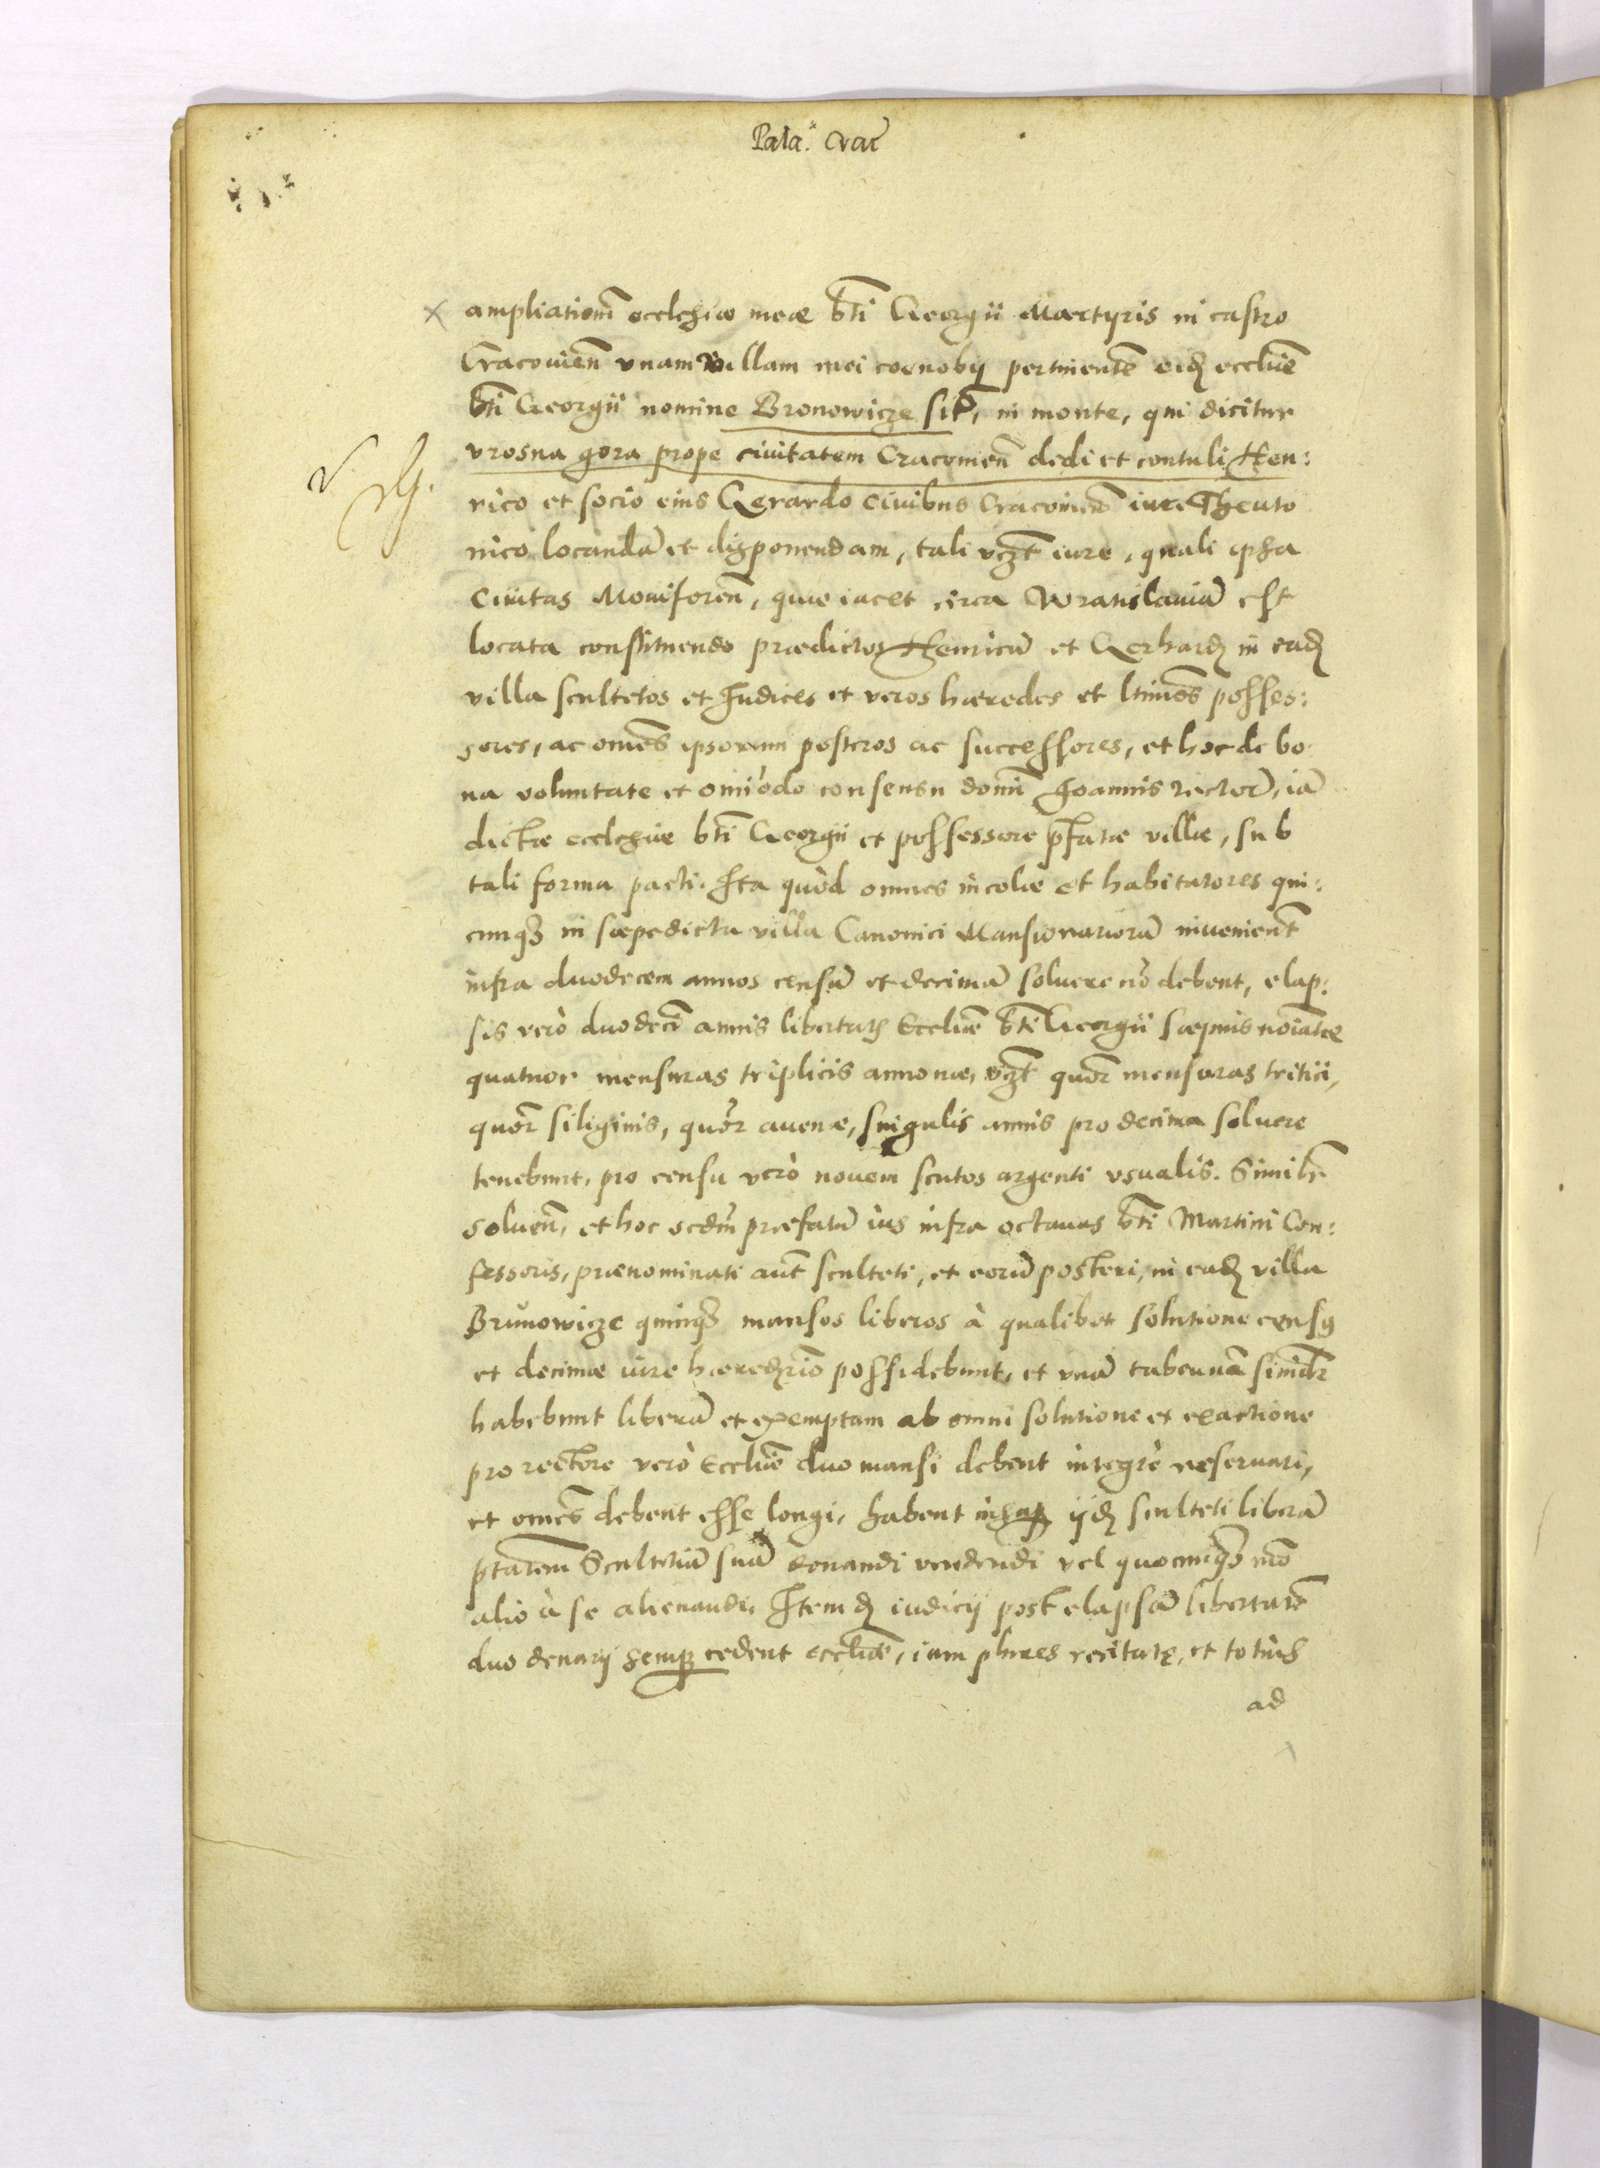 Pala. Crac
ampliationē ecclesiæ meæ bti Georgii Martyris in castro
Cracovieñ vnam villam mei coenobij pertinentē eid ecclīæ
bti Georgii nomine Bronowicze sit, in monte, qui dicitur
vrosna gora prope ciuitatem Cracouieñ dedi et contuli Hen:
rico et socio eius Gerardo ciuibus Cracouieñ iure Theuto
nico locandā et disponendam, tali vczt iure, quali ipsa
Ciuitas Nouiforeñ, quæ iacet circa Wratislauiā est
locata constituendo prædictos Henricū et Gerhard in ead
villa scultetos et Iudices et veros hæredes et ltimos posses:
sores, ac omēs ipsorum posteros ac successores, et hoc de bo
na voluntate et omiōdo consensu domī Ioannis rector, iā
dictæ ecclesiæ bti Georgii et possessore pfatæ villæ, sub
tali forma pacti. Ita quòd omnes incolæ et habitatores qui:
cunq in sæpedicta villa Canonici Mansionariorū inuenient
infra duodecem annos censū et decimā soluere nō debent, elap:
sis verò duodecī annis libertatis Ecclīæ bti Georgii sæpius noīatæ
quatuor mensuras triplicis annonæ, vczt quor mensuras tritici,
quor siliginis, quor auenæ, singulis annis pro decima soluere
tenebunt, pro censu verò nouem scutos argenti vsualis. Similr
solueñ, et hoc scdm præfatū ius infra octauas bti Martini Con:
fessoris, prænominati aut sculteti, et eorū posteri, in ead villa
Brunowicze quinq mansos liberos à qualibet solutione censu
et decimæ iure hæredrio possidebunt, et vnā tabernā similr
habebunt liberā et exemptam ab omni solutione et exactione
pro rectore verò Ecclīæ duo mansi debent integrè reseruari,
et omēs debent esse longi, habent insup ijd sculteti liberā
ptatem Scultetiā suā donandi vendendi vel quocunq mō
alio à se alienandi, Item d iudicij post elapsā libertatē
duo denarij semp cedent ecclīæ, iam plures recitatę, et totius
ad